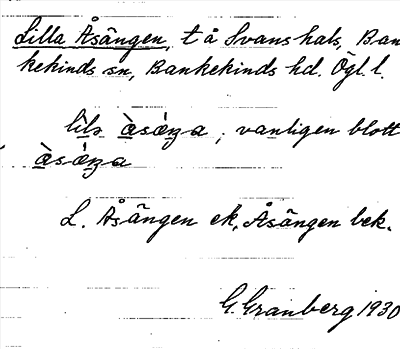 Lilla Åsängen, t å Svanshals, Ban
kekinds sn, Bankekinds hd. Ögl. l.
vanligen blott
L. Åsängen ek, Åsängen bek.
G. Granberg 1930